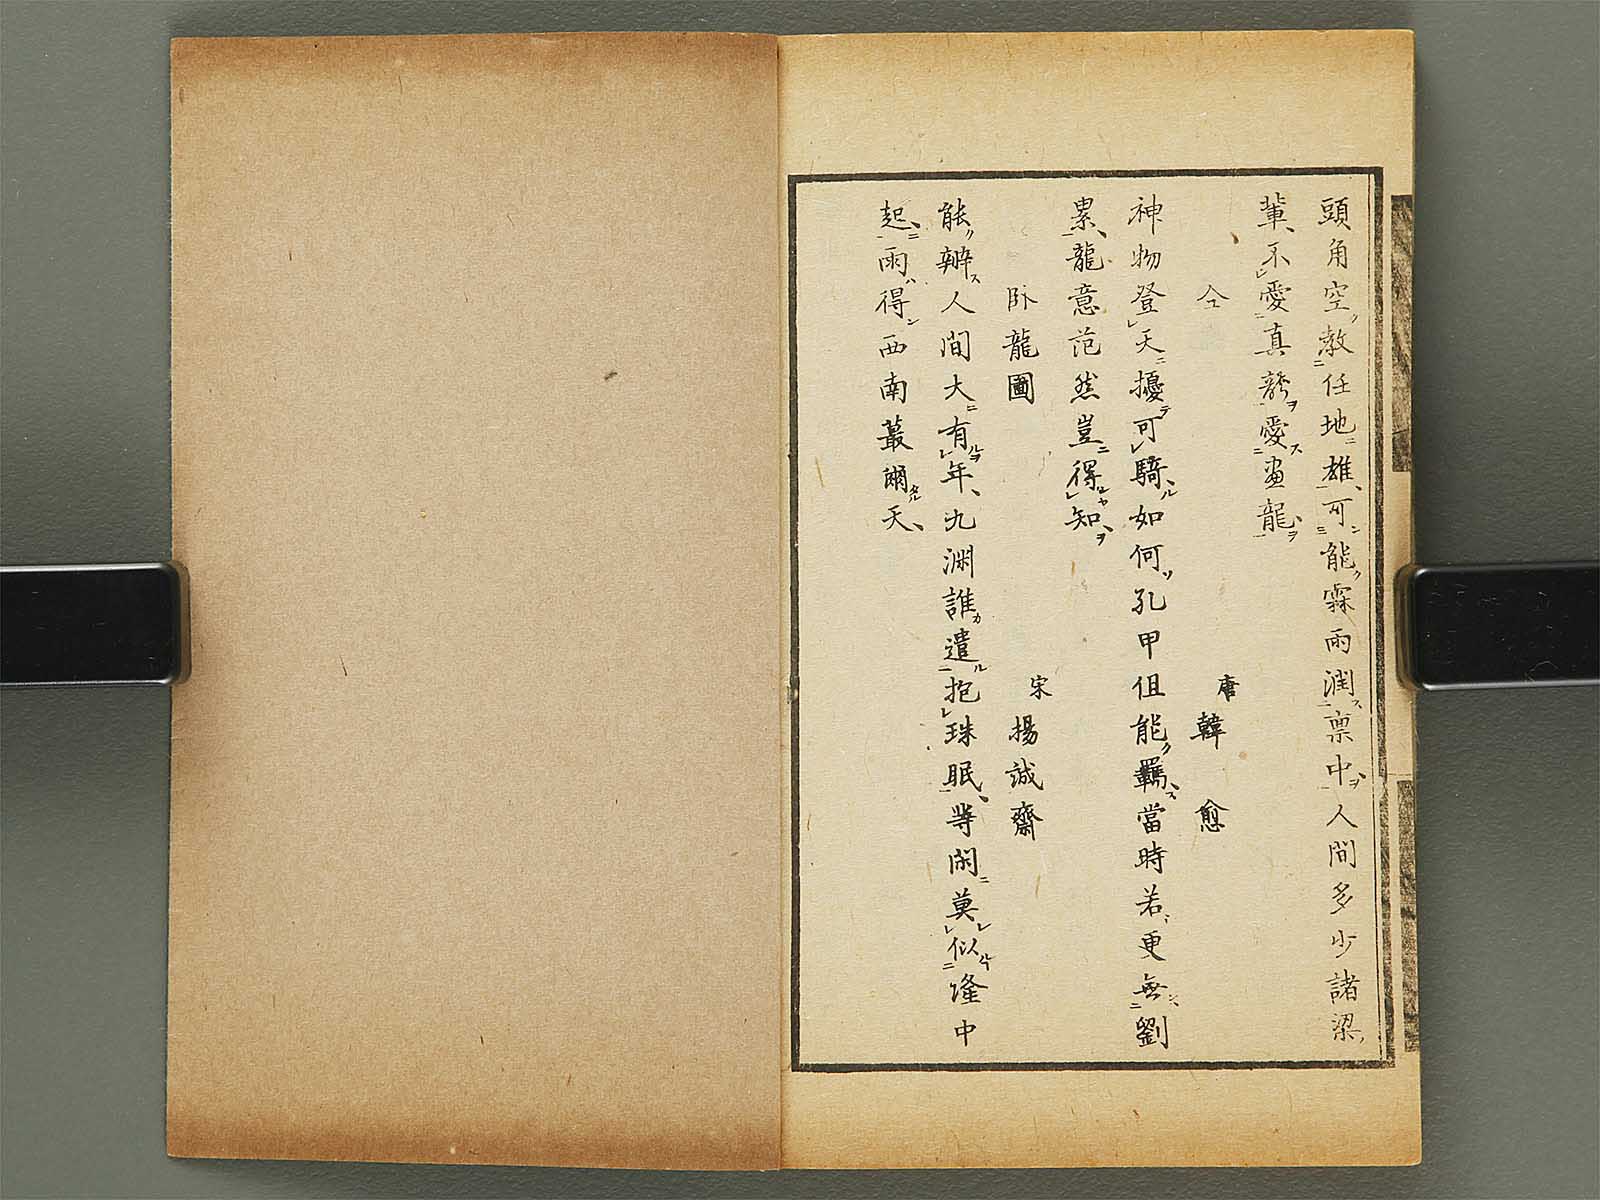 頭角空教任地雄可能霖雨潤禀中人間多少諸梁
輩不愛真龍愛畫龍
仝 唐 韓愈
神物登天擾可騎如何孔甲但能羈當時若更無劉
累龍意范然豈得知
卧龍圖 宋 揚誠齋
能辨人間大有年九渊誰遣抱珠眠等閑莫似隆中
起雨得西南蕞爾天